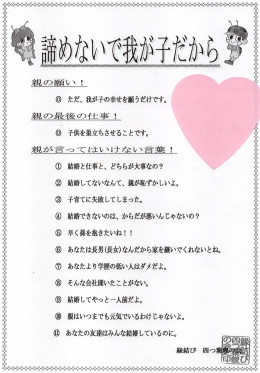 諦めないで我が子だから
親の願い！
◎ ただ、我が子の幸せを願うだけです。
親の最後の仕事！
◎ 子供を巣立ちさせることです。
親が言ってはいけない言葉！
① 結婚と仕事と、どちらが大事なの？
② 結婚してないなんて、親が恥ずかしいよ。
③ 子育てに失敗してしまった。
④ 結婚できないのは、からだが悪いんじゃないの？
⑤ 早く孫を抱きたいね！！
⑥ あなたは長男(長女)なんだから家を継いでくれないとね。
⑦ あなたより学歴の低い人はダメだよ。
⑧ そんな会社聞いたことがない。
⑨ 結婚してやっと一人前だよ。
⑩ 親はいつまでも元気でいるわけじゃないよ。
⑪ あなたの友達はみんな結婚しているのに。
縁結び 四つ葉